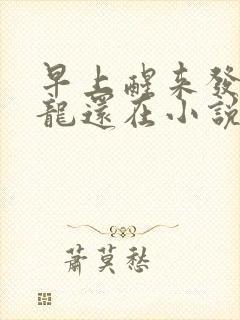 早上醒來發
龍還在小說
蕭莫愁